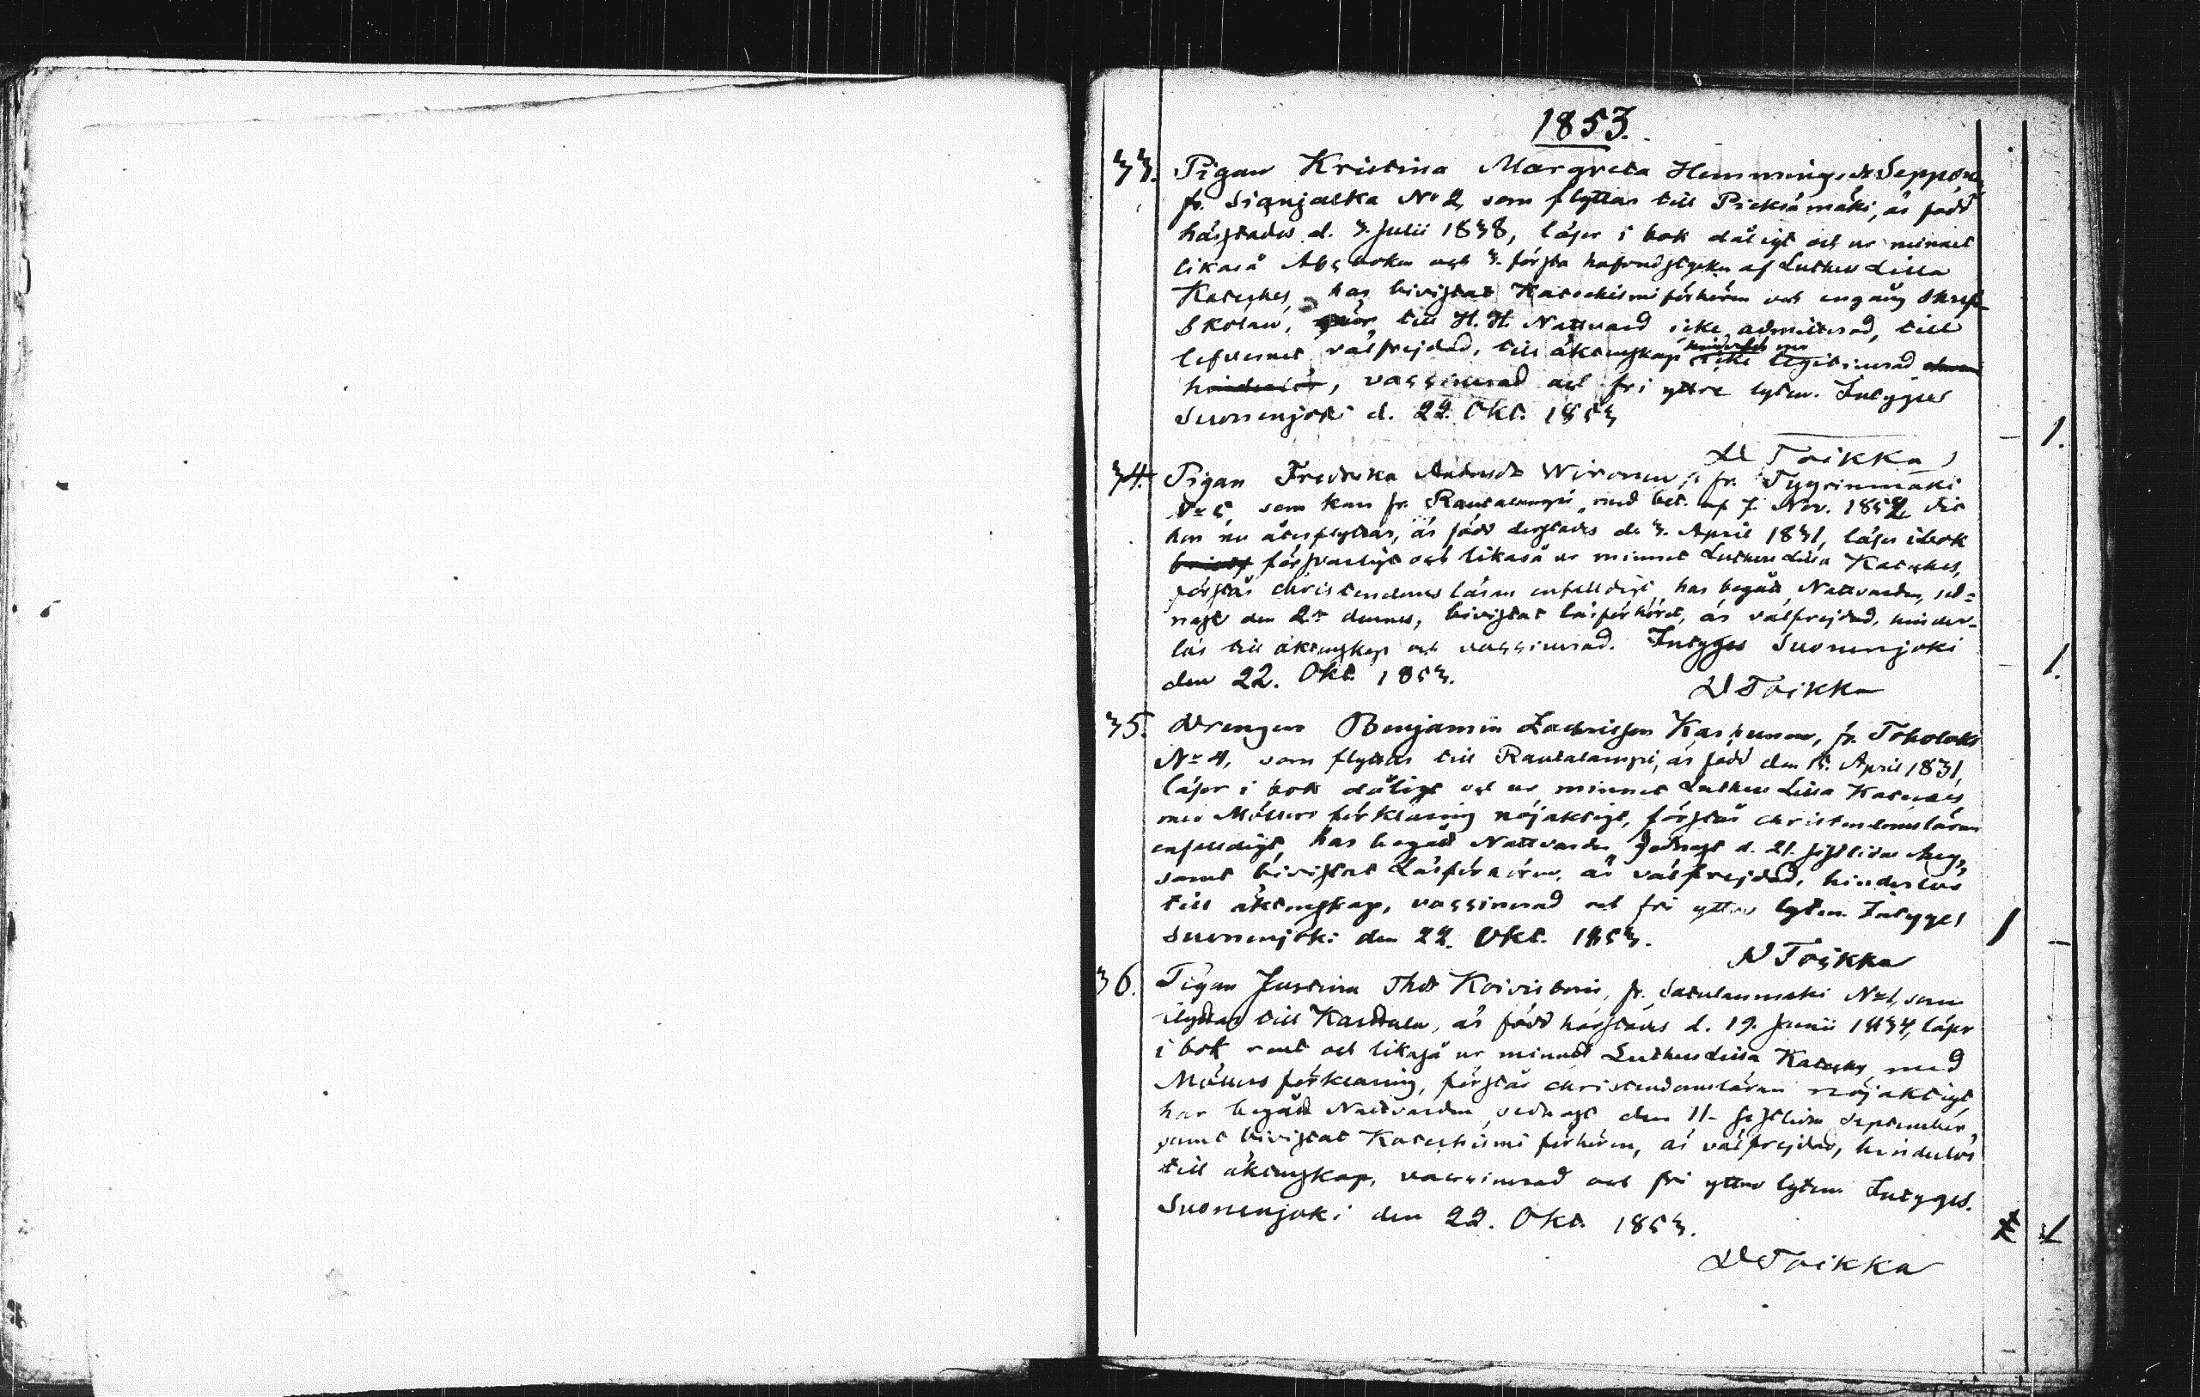 1853.
33. Pigan Kristina Margreta Hemmings dr Seppone
fr. Sianjalka No 2, som flyttar till Pieksämäki, är född
härstädes d. 3. Julii 1838, läser i bok dåligt och ur minnet
likaså Abcboken och 3. första hufvudstycken af Luthers Lilla
Kateches, har bivistat Katechismiförhören och engång Skrift
Skolan, till H. H. Nattvard icke admitterad, till
lefvernet välfrejdad, till äktenskap icke legitimerad
hinderlös, vaccinerad och fri yttre lyten. Intygas
Suonenjoki d. 22. Okt. 1853
D Toikka
1.
34. Pigan Fredrika Andersdr Wironen, fr. Tyyrinmäki
No 5, som kom fr. Rautalampi med bet. af 7 Nov. 1852, dit
hon nu återflyttar, är född derstädes d. 3. April 1831, läser i bok
försvarligt och likaså ur minnet Luthers Lilla Kateches,
förstår christendomsläran enfelldigt, har begått Nattvarden, sed=
nast den 2 dennes, bivistat läsförhöret, är välfrejdad, hinder=
lös till äktenskap och vaccinerad. Intygas Suonenjoki
den 22. Okt. 1853.
D Toikka
1.
35. Drengen Benjamin Zachrisson Karhunen, fr. Toholaks
No 4, som flyttar till Rautalampi, är född den 15. April 1831,
läser i bok dåligt och ur minnet Luthers Lilla Kateches
med Möllers förklaring nöjaktigt, förstår christendomsläran
enfelldigt, har begått Nattvarden sednast d. 21. sistlidne Aug.,
samt bivistat Läsförhören, är välfrejdad, hinderlös
till äktenskap, vaccinerad och fri yttre lyten. Intygas
Suonenjoki den 22. Okt. 1853.
D Toikka
1 –
36. Pigan Justina Thdr Koivistoin, fr. Satulanmäki No 1, som
flyttar till Karttula, är född härstädes d. 19. Junii 1834, läser
i bok rent och likaså ur minnet Luthers Lilla Kateches med
Möllers förklaring, förstår christendomsläran nöjaktigt,
har begått Nattvarden sednast den 11. sistlidne September,
samt bivistat Katechismi förhören, är välfrejdad, hinderlös
till äktenskap, vaccinerad och fri yttre lyten. Intygas.
Suonenjoki den 22. Okt. 1853.
1
D Toikka